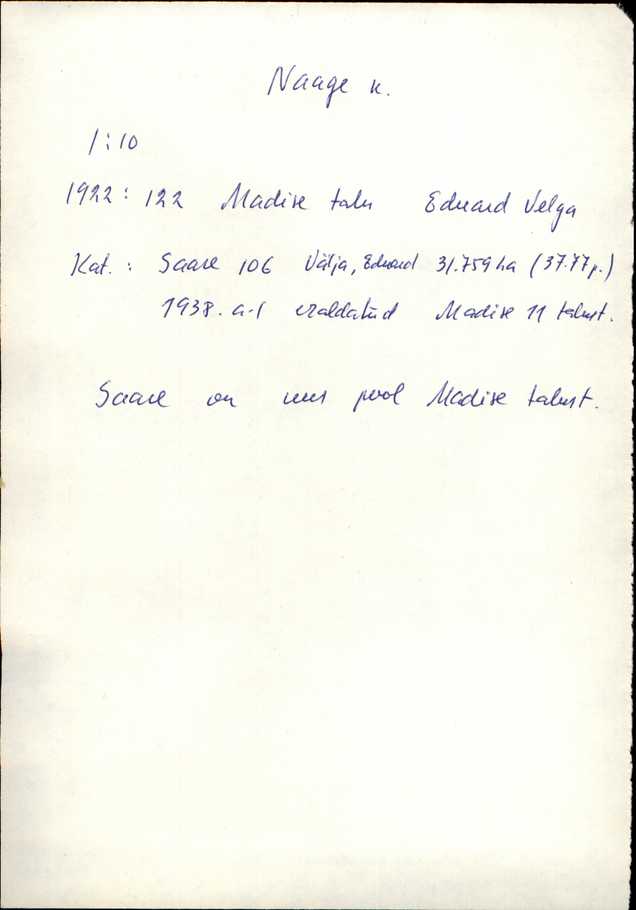 Naage k.
1:10
1922: 122 Madise talu Eduard Velga
Kat.: Saare 106 Välja, Eduard 31.759 ha (37.77 p.)
1938. a-l eraldatud Madise 11 talust.
Saare on uus pool Madise talust.